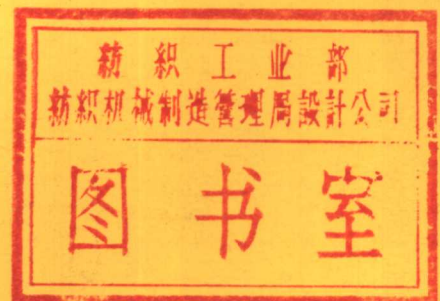 紡織工业部
紡織机械制造管理局設計公司
图书室